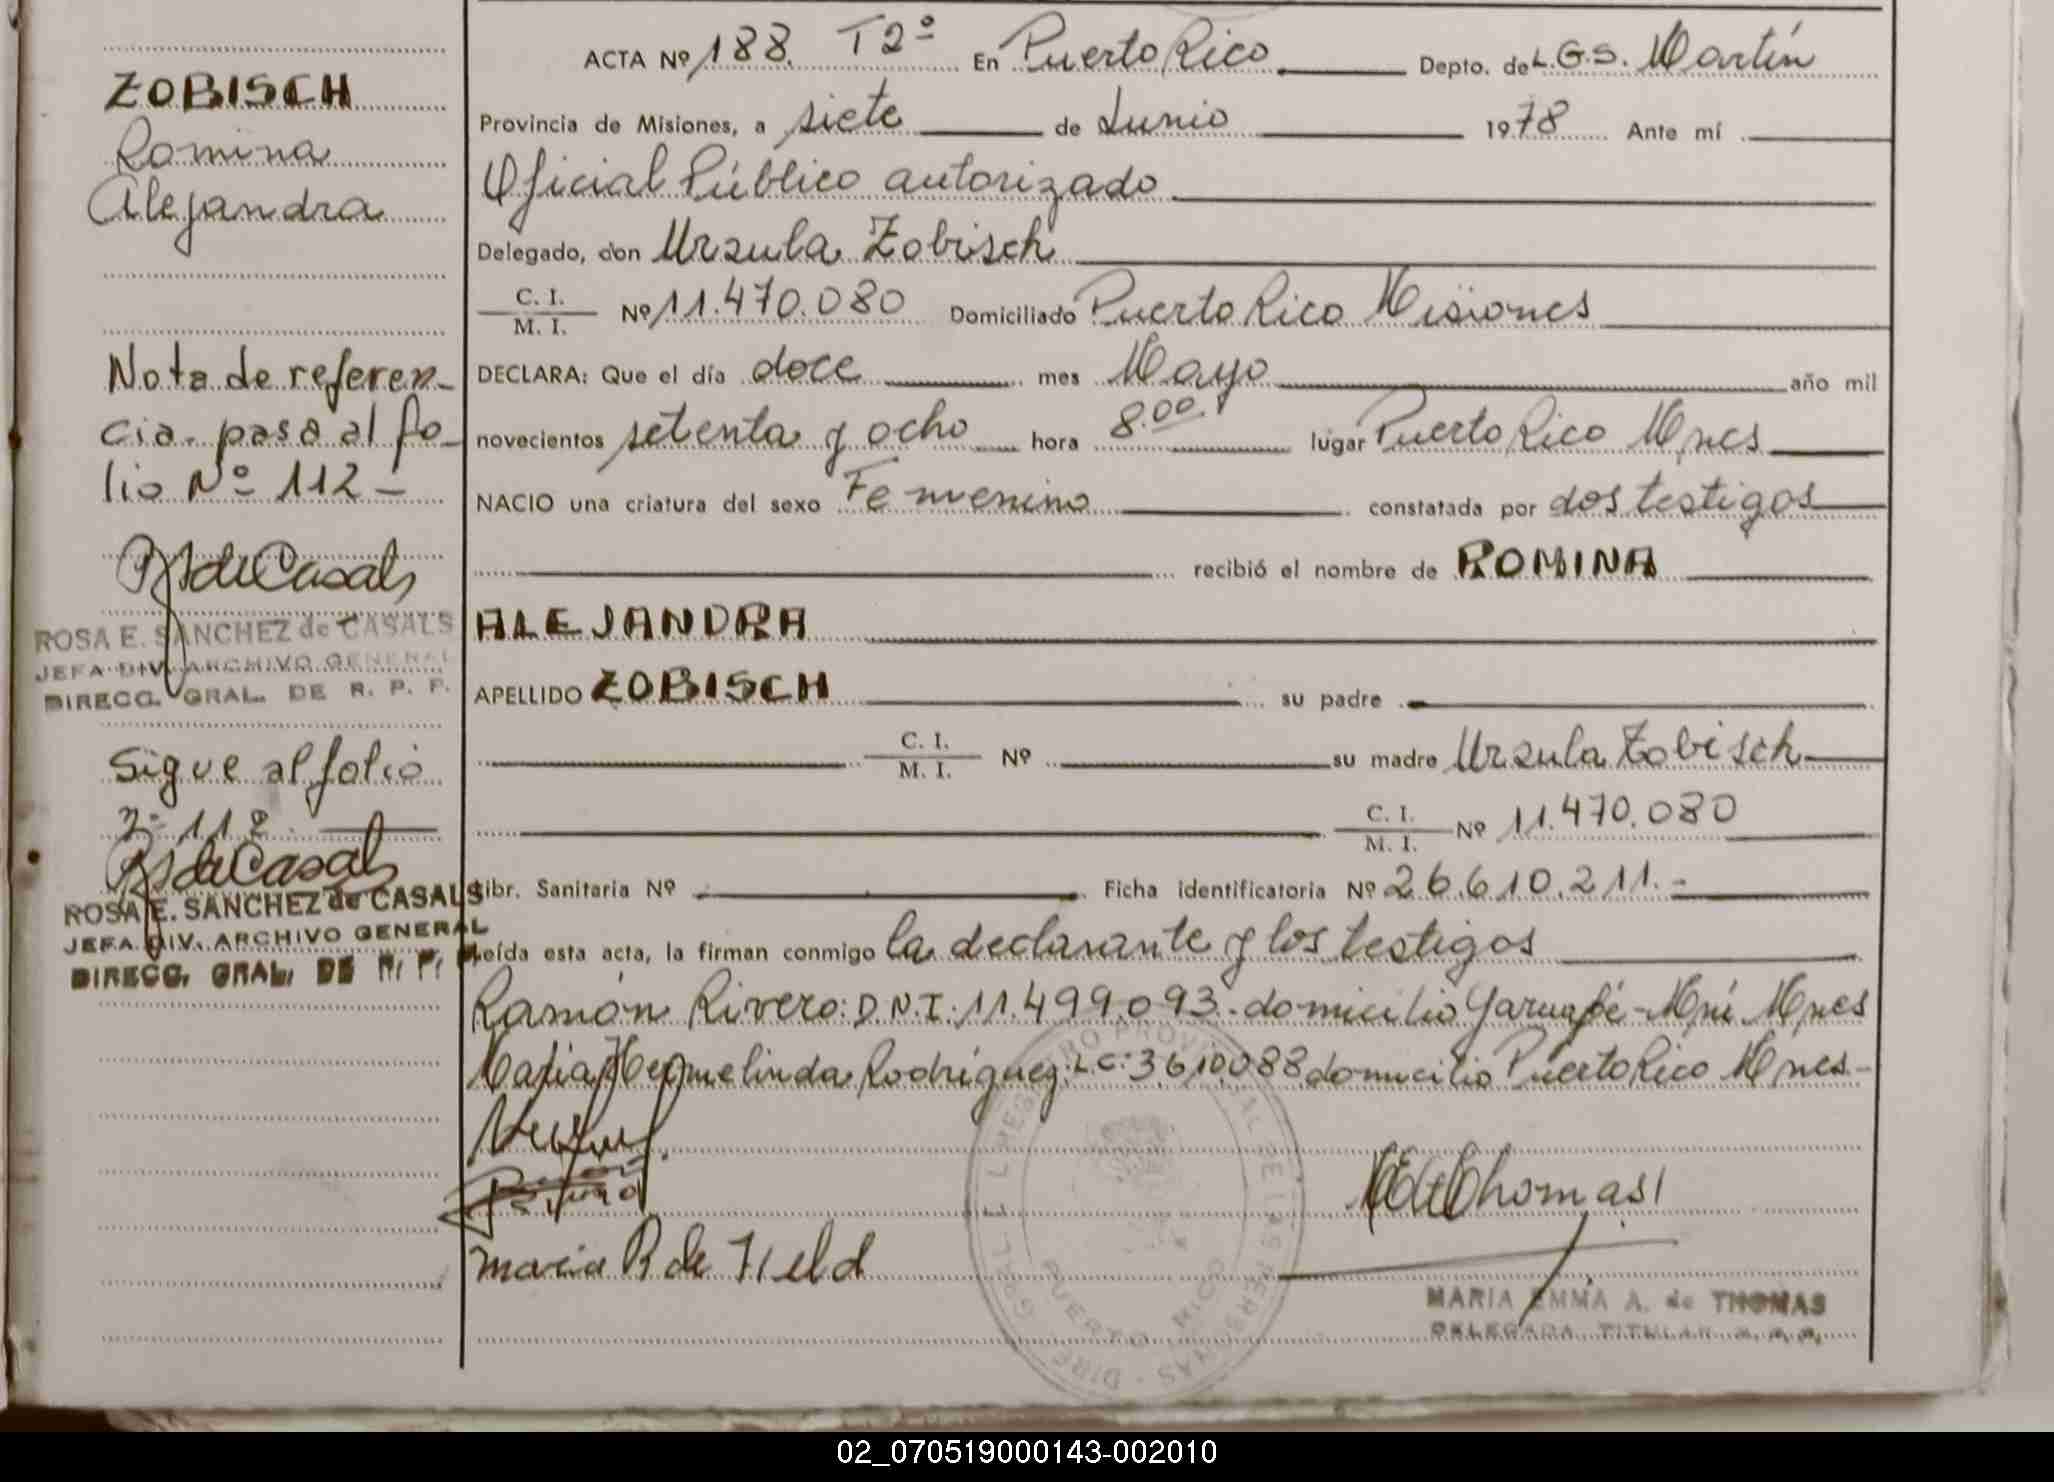 ZOBISCH
Romina
Alejandra
Nota de referen-
cia. pasa al fo-
lio Nº 112 -
RSdeCasals
ROSA E. SANCHEZ de CASALS
JEFA DIV. ARCHIVO GENERAL
DIRECG. GRAL. DE R. P. P.
Sigue al folio
112
RSdeCasals
ROSA E. SANCHEZ de CASALS
JEFA DIV. ARCHIVO GENERAL
DIRECG. GRAL. DE R. P.
ACTA Nº 188. T2º En Puerto Rico Depto. de L.G.S. Martín
Provincia de Misiones, a siete de Junio 1978 Ante mí
Oficial Público autorizado
Delegado, don Urzula Zobisch
C. I.
M. I. Nº 11.470.080 Domiciliado Puerto Rico Misiones
DECLARA: Que el día doce mes Mayo año mil
novecientos setenta y ocho hora 8.00 lugar Puerto Rico Mnes
NACIO una criatura del sexo Femenino constatada por dos testigos
recibió el nombre de ROMINA
ALEJANDRA
APELLIDO ZOBISCH su padre
C. I.
M. I. Nº su madre Urzula Zobisch
C. I.
M. I. Nº 11.470.080
Libr. Sanitaria Nº Ficha identificatoria Nº 26.610.211.-
Leída esta acta, la firman conmigo la declarante y los testigos
Ramón Rivero: D.N.I. 11.499.093.- domicilio Garuapé-Mní Mnes
Maria Hermelinda Rodríguez: LC: 3.610.088 domicilio Puerto Rico Mnes.-
maria R de Field
MEdeThomas
MARIA EMMA A. de THOMAS
DELEGADA TITULAR
DIREC. GRAL. DEL REGISTRO PROVINCIAL DE LAS PERSONAS
PUERTO RICO
02_070519000143-002010